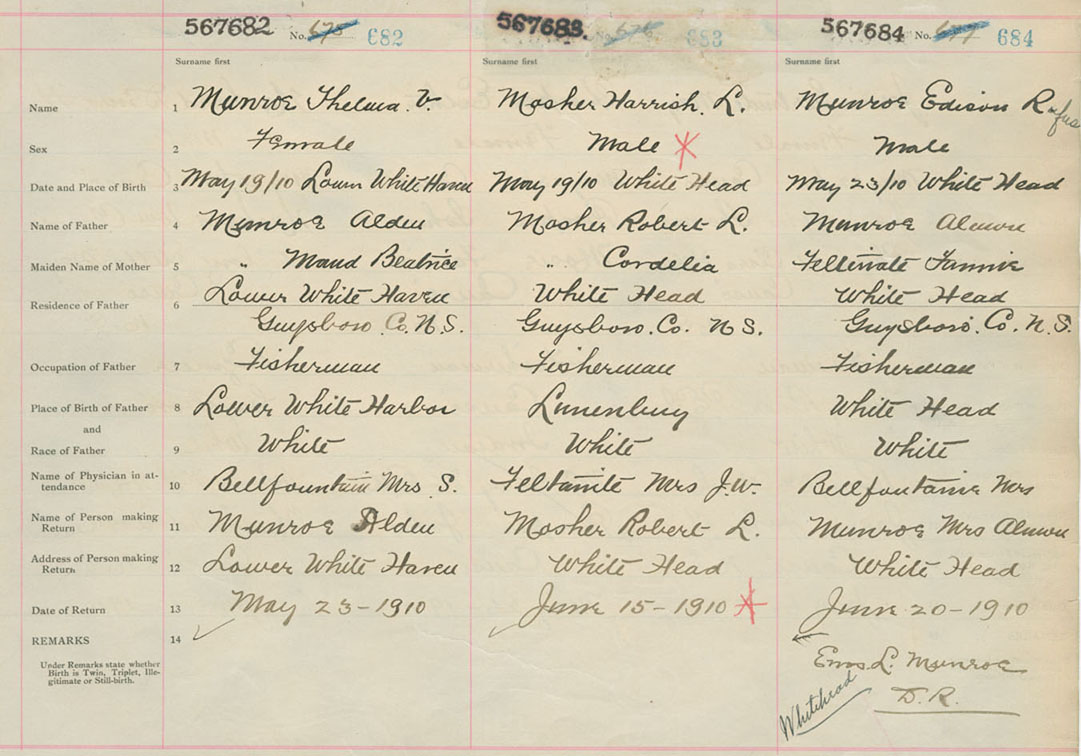 567682 No. 675 682 567683. No. 676 683 567684 No. 677 684
Surname first Surname first Surname first
Name 1 Munroe Thelma. V. Mosher Harrish. L. Munroe Edison Rufus
Sex 2 Female Male Male
Date and Place of Birth 3 May 19/10 Lower White Haven May 19/10 White Head May 23/10 White Head
Name of Father 4 Munroe Alden Mosher Robert L. Munroe
Maiden Name of Mother 5 " Maud Beatrice " Cordelia Fannie
Residence of Father 6 Lower White Haven White Head White Head
Guysboro Co. N.S. Guysboro. Co. N S. Guysboro. Co. N.S.
Occupation of Father 7 Fisherman Fisherman Fisherman
Place of Birth of Father 8 Lower White Harbor Lunenburg White Head
and
Race of Father 9 White White White
Name of Physician in at-
tendance 10 Bellfountain Mrs S. Mrs J.W. Bellfontaine Mrs
Name of Person making
Return 11 Munroe Alden Mosher Robert L. Munroe Mrs
Address of Person making
Return 12 Lower White Haven White Head White Head
Date of Return 13 May 23-1910 June 15-1910 June 20-1910
REMARKS 14
Under Remarks state whether
Birth is Twin, Triplet, Ille-
gitimate or Still-birth.
L. Munroe
D.R.
Whitehead